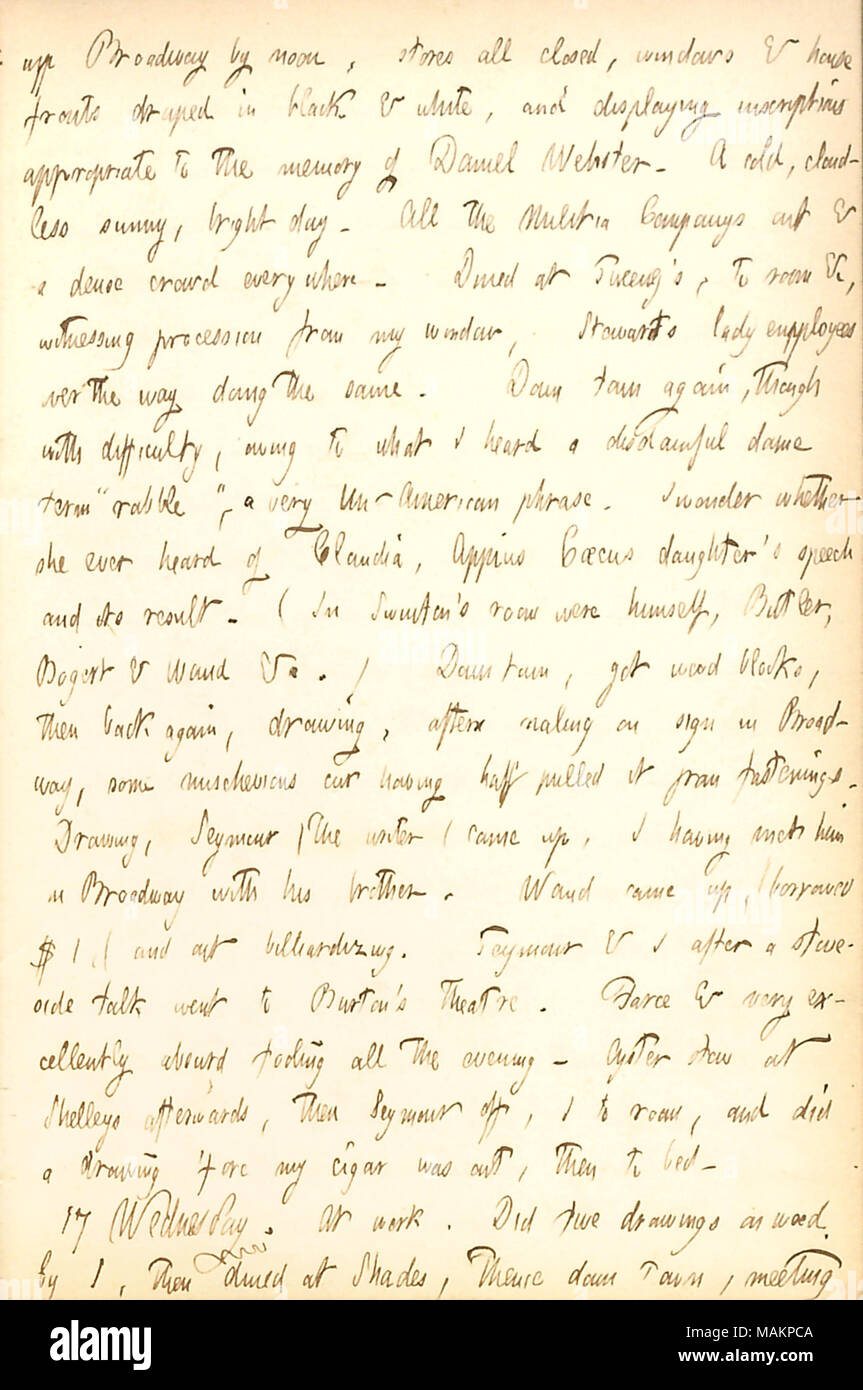 up Broadway by noon, stores all closed, windows & house
fronts draped in black & white, and displaying inscriptions
appropriate to the memory of Daniel Webster. A cold, cloud-
less sunny, bright day. All the Militia Companys out &
a dense crowd everywhere. Dined at Sweeny's, to room &c,
witnessing procession from my window, Stewarts lady employees
over the way doing the same. Down town again, though
with difficulty, owing to what I heard a disdainful dame
term "rabble", a very Un-American phrase. I wonder whether
she ever heard of Claudia, Appius Cæcus daughter's speech
and its result. (In Swinton's room were himself, Butler,
Bogert & Waud &c.) Down town, got wood blocks,
then back again, drawing, after nailing on sign in Broad-
way, some mischevious cur having half pulled it from fastenings.
Drawing, Seymour (the writer) came up, I having met him
in Broadway with his brother. Waud came up, (borrowed
$1,) and out billiardizing. Seymour & I after a stove-
side talk went to Burton's Theatre. Farce & very ex-
cellently absurd fooling all the evening. Oyster stew at
Shelleys afterwards, then Seymour off, I to room, and did
a drawing 'fore my cigar was out, then to bed.
17 Wednesday. At work. Did two drawings on wood
by 1, then dined at Shades, thence down town, meeting
alamy
Image ID: MAKPCA
www.alamy.com